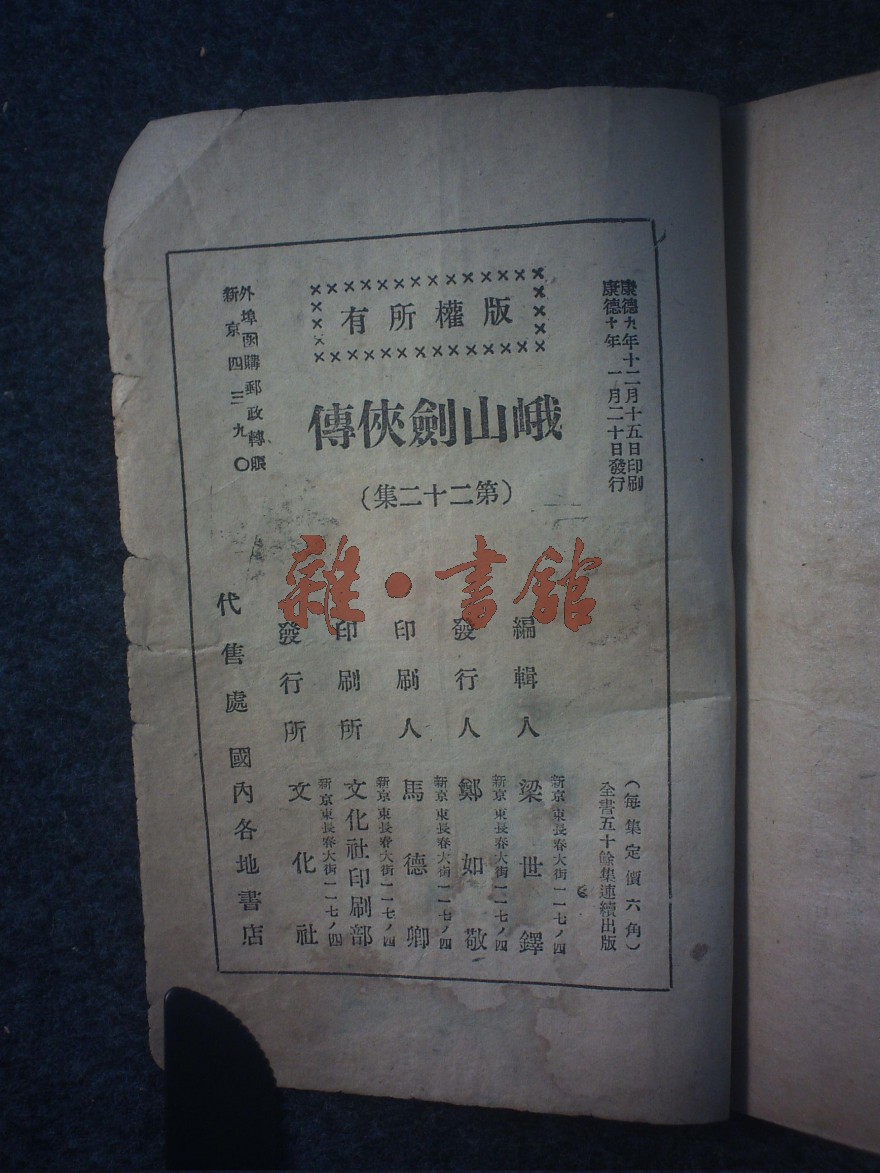 康德九年十二月十五日印刷
康德十年一月二十日發行
(每集定價六角)
全書五十餘集連續出版
版權所有
峨山劍俠傳
(第二十二集)
編輯人 梁世鐸
新京東長春大街一一七ノ四
發行人 鄭如敬
新京東長春大街一一七ノ四
印刷人 馬德卿
新京東長春大街一一七ノ四
印刷所 文化社印刷部
新京東長春大街一一七ノ四
發行所 文化社
新京東長春大街一一七ノ四
代售處 國內各地書店
外埠函購郵政轉賬
新京四三九〇
雜·書館